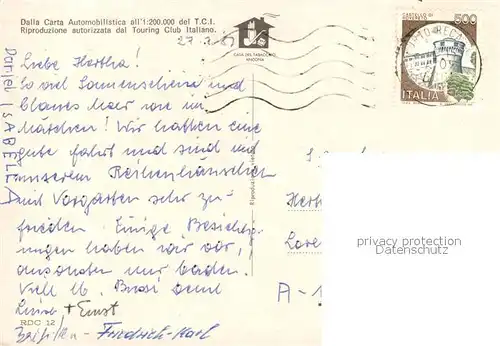 Dalla Carta Automobilistica all'1:200.000 del T.C.I.
Riproduzione autorizzata dal Touring Club Italiano.
CASA DEL TABACCHINO
ANCONA
CASTELLO DI
500
ITALIA
Daniel ISABELLA
Liebe Hertha!
So viel Sonnenschein und
blaues Meer wie im
Märchen! Wir hatten eine
gute Fahrt und sind mit
unserem Reihenhäuschen
und Vorgarten sehr zu-
frieden. Einige Besichti-
gungen haben wir vor,
ansonsten nur baden.
Viell lb. Bussi Deine
Luise + Ernst
Friedrich-Karl
RDC 12
Herth
Lore
A-1
privacy protection
Datenschutz